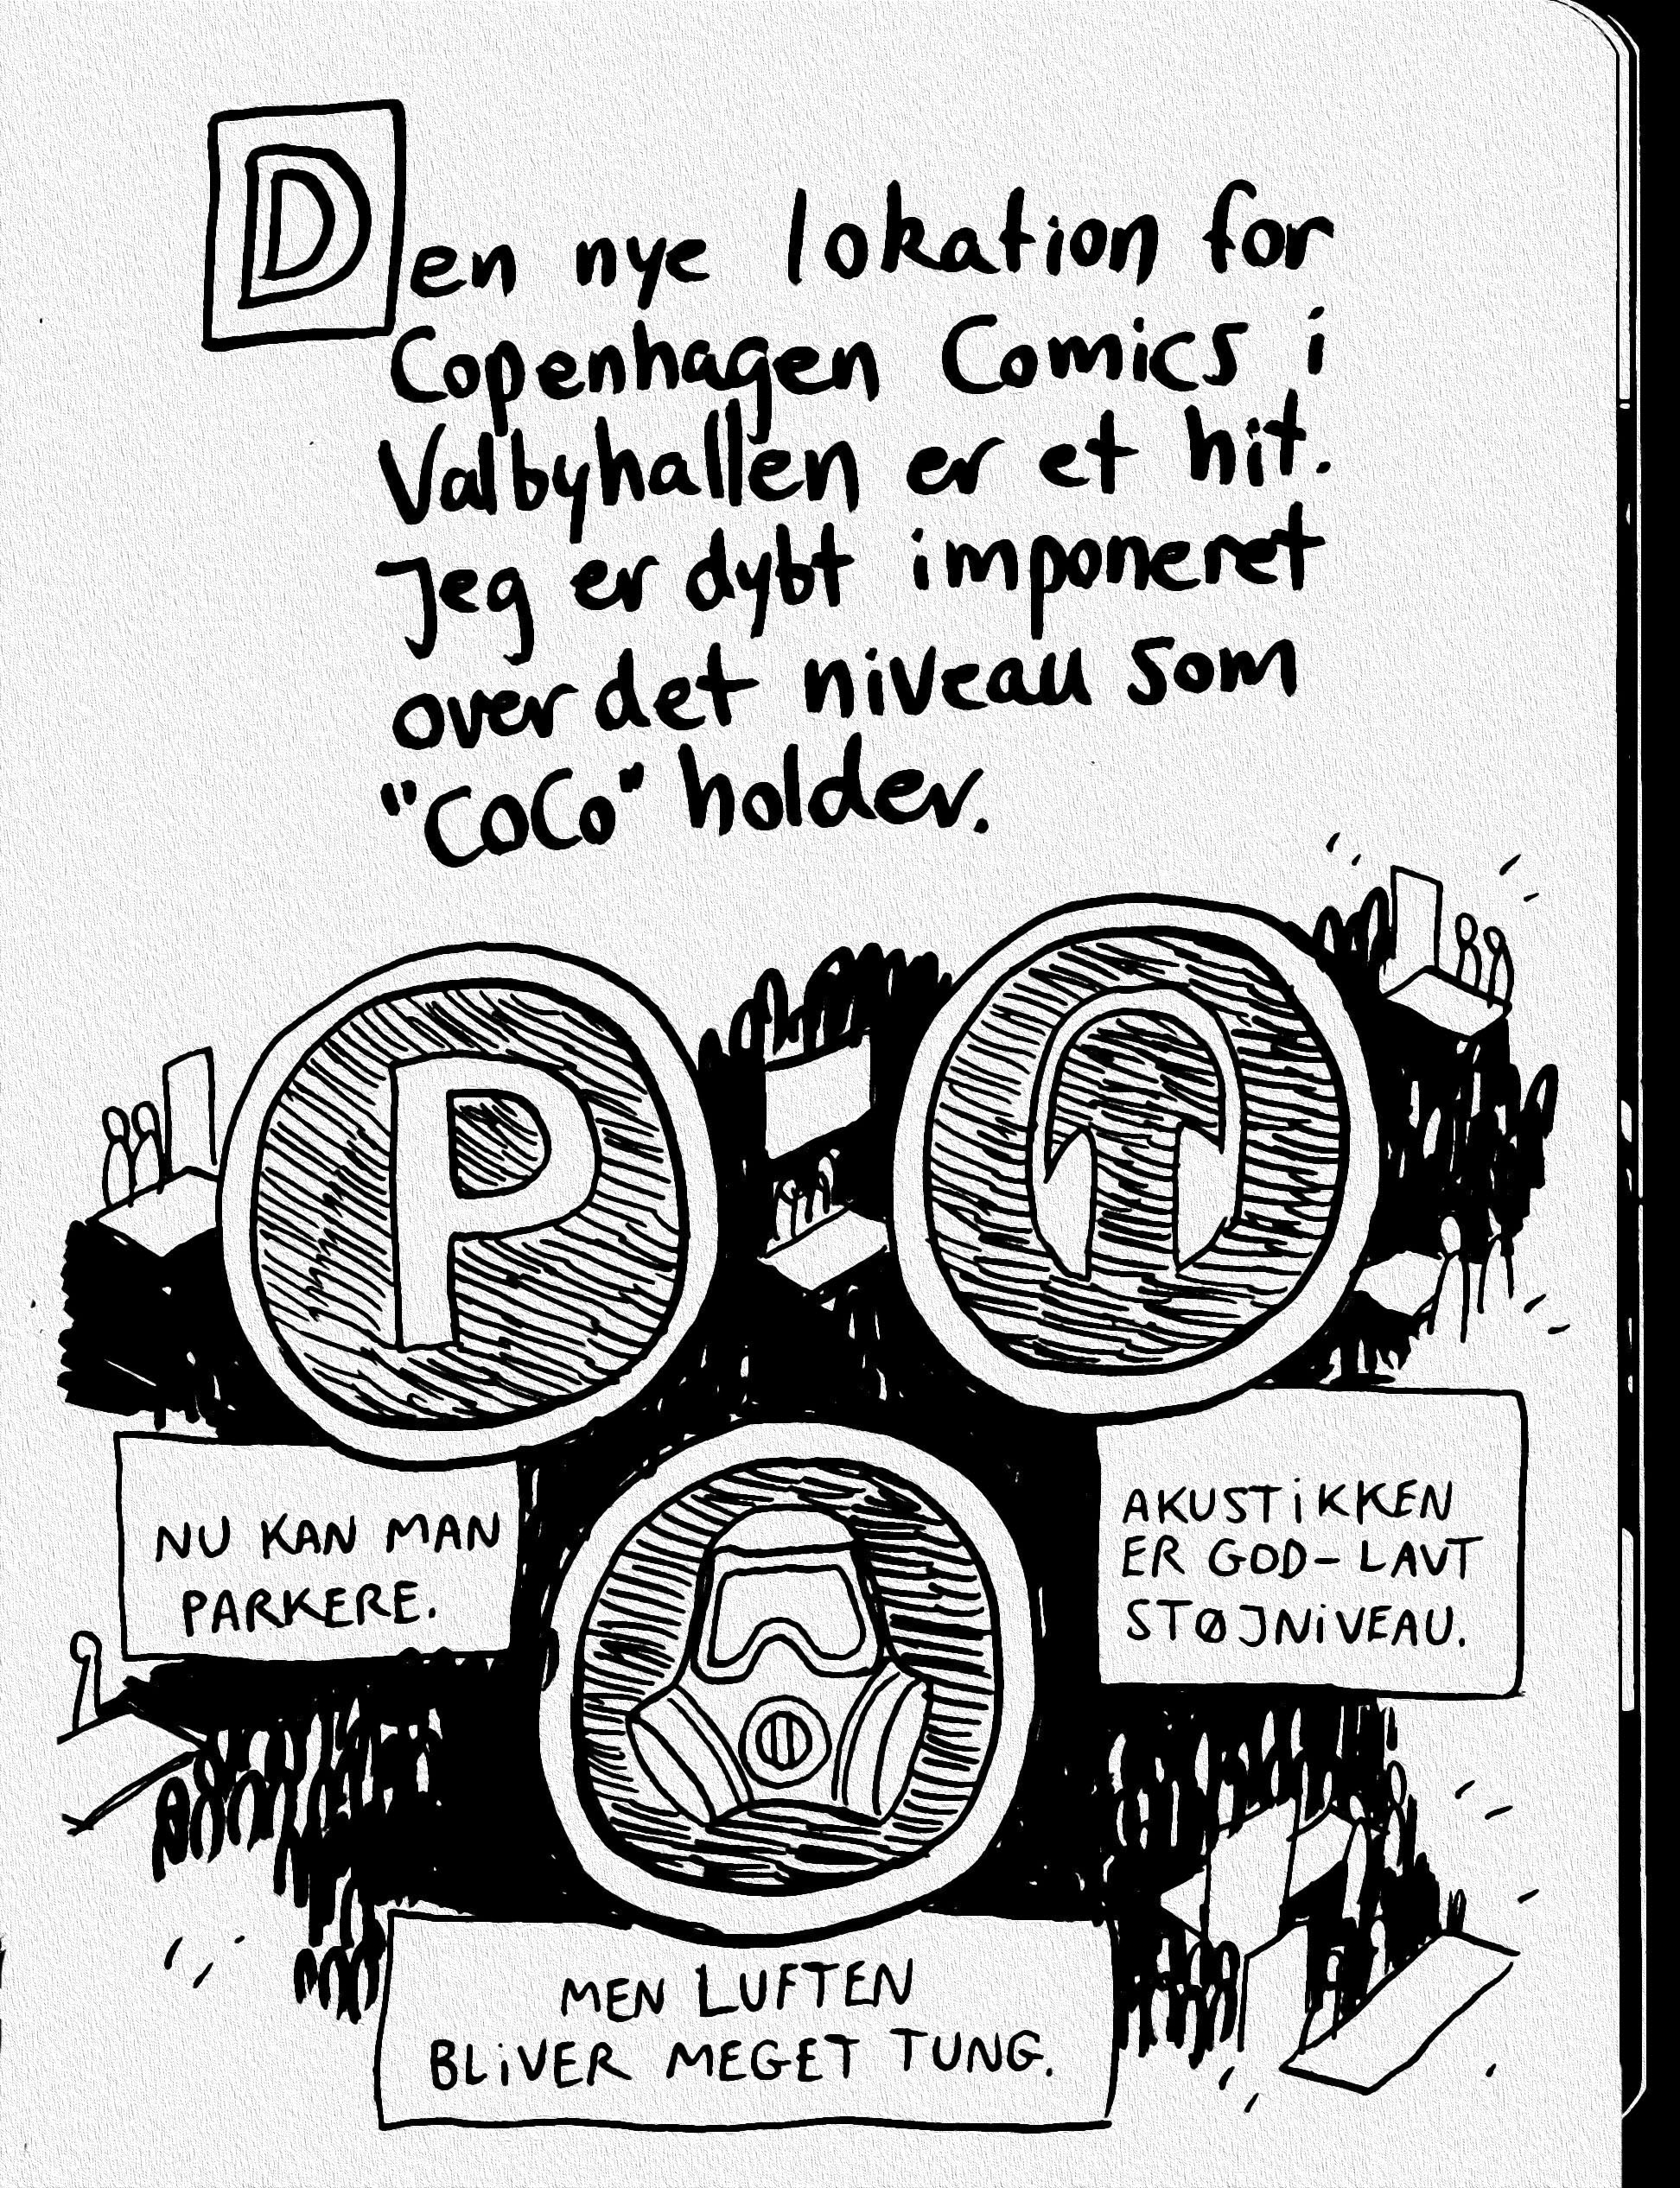 Den nye lokation for
Copenhagen Comics i
Valbyhallen er et hit.
Jeg er dybt imponeret
over det niveau som
"CoCo" holder.
P
NU KAN MAN
PARKERE.
AKUSTiKKEN
ER GOD- LAVT
STØJNiVEAU.
MEN LUFTEN
BLiVER MEGET TUNG.